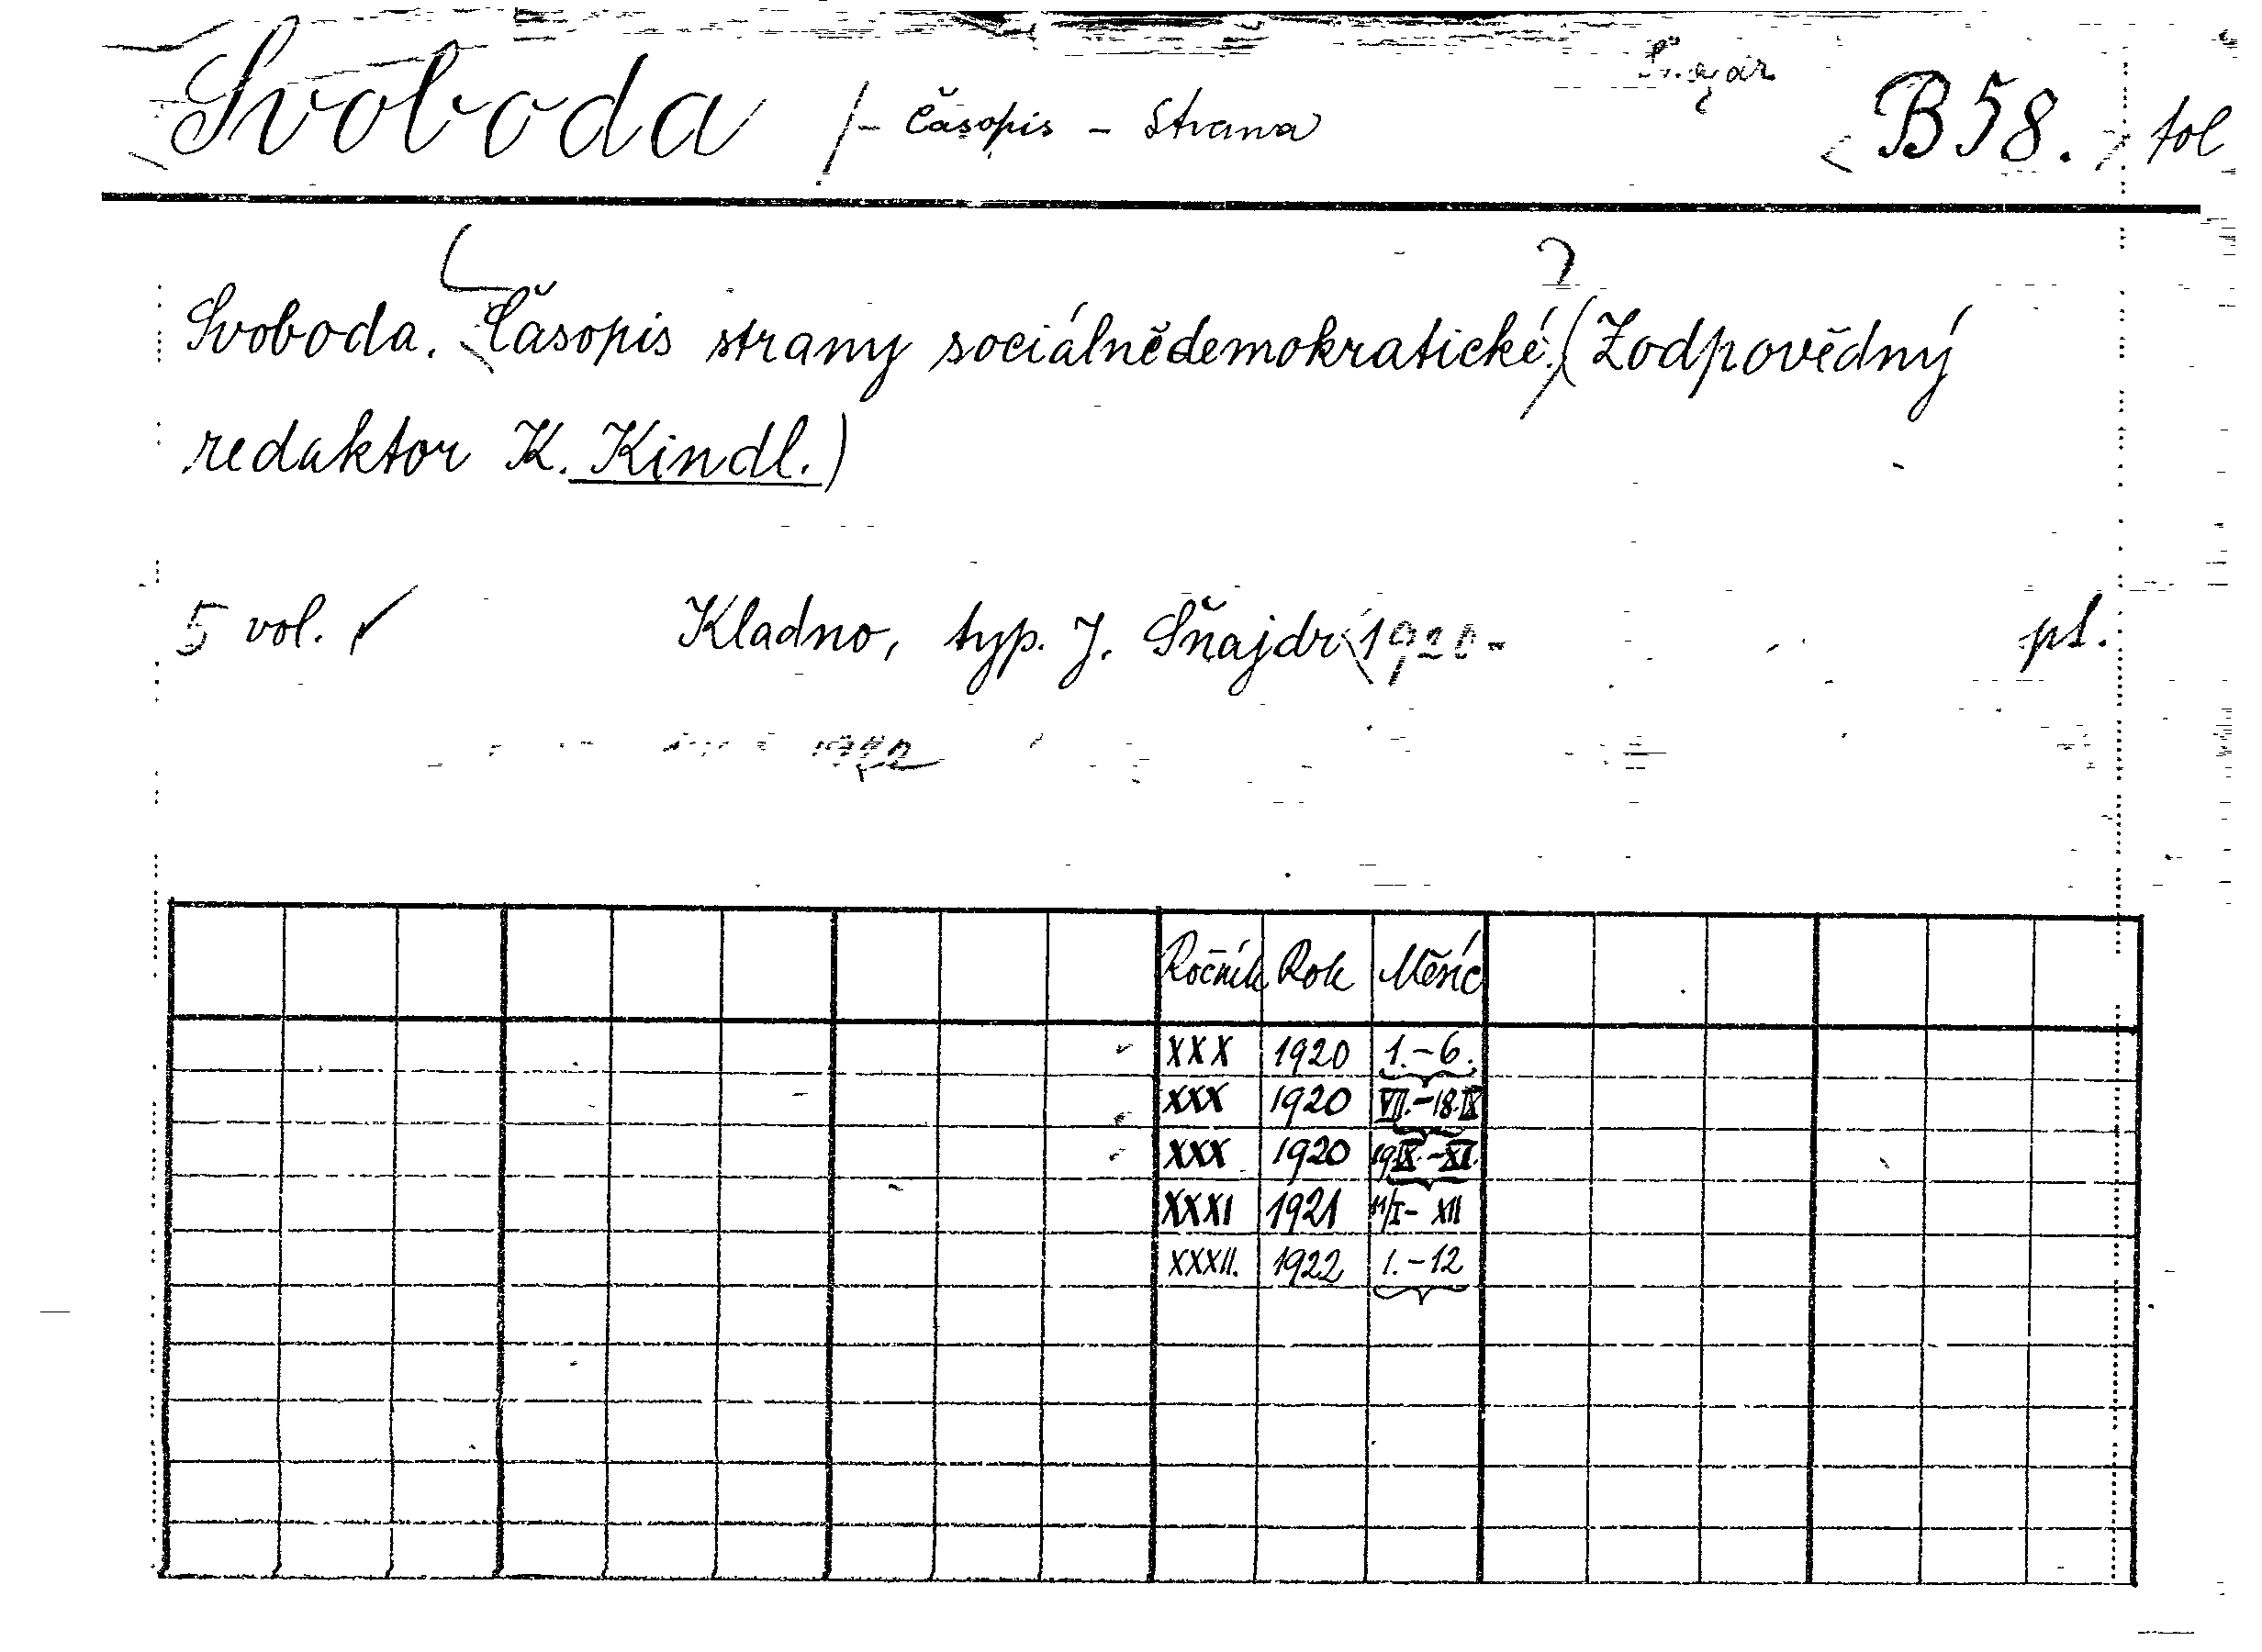 Svoboda /- časopis - strana B 58. fol
Svoboda. Časopis strany sociálnědemokratické. (Zodpovědný
redaktor K. Kindl.)
5 vol. ✓ Kladno, typ. J. Šňajdr 1920- pl.
Ročník Rok Měsíc
XXX 1920 1.-6.
XXX 1920 VII.-18.IX
XXX 1920 19.IX.-XII.
XXXI 1921 11/I- XII
XXXII. 1922 1.-12